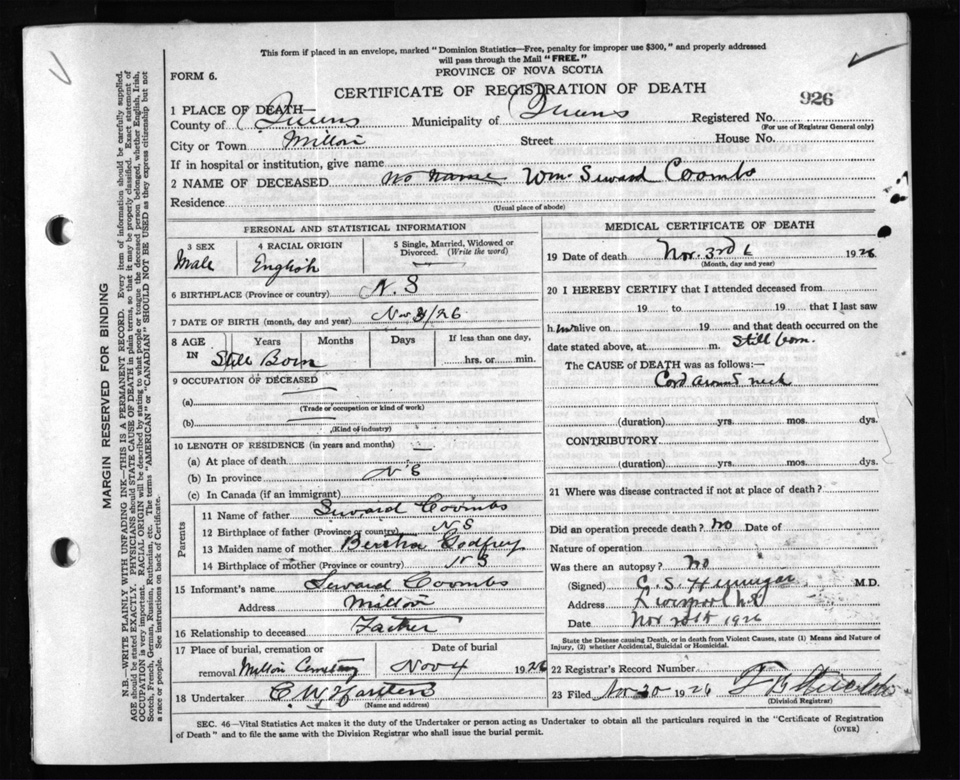 This form if placed in an envelope, marked "Dominion Statistics—Free, penalty for improper use $300," and properly addressed
will pass through the Mail "FREE."
PROVINCE OF NOVA SCOTIA
FORM 6.
CERTIFICATE OF REGISTRATION OF DEATH
926
1 PLACE OF DEATH—
County of Queens Municipality of Queens Registered No.
(For use of Registrar General only)
City or Town Milton Street House No.
If in hospital or institution, give name
2 NAME OF DECEASED no name Wm. Seward Coombs
Residence
(Usual place of abode)
MARGIN RESERVED FOR BINDING
N.B.—WRITE PLAINLY WITH UNFADING INK—THIS IS A PERMANENT RECORD. Every item of information should be carefully supplied.
AGE should be stated EXACTLY. PHYSICIANS should STATE CAUSE OF DEATH in plain terms, so that it may be properly classified. Exact statement of
OCCUPATION is very important. RACIAL ORIGIN will be described by stating to what people or tongue the deceased person belonged, whether English, Irish,
Scotch, French, German, Russian, Ruthenian, etc. The terms "AMERICAN" or "CANADIAN" SHOULD NOT BE USED as they express citizenship but not
a race or people. See instructions on back of Certificate.
PERSONAL AND STATISTICAL INFORMATION
3 SEX 4 RACIAL ORIGIN 5 Single, Married, Widowed or
Divorced. (Write the word)
Male English
6 BIRTHPLACE (Province or country) N. S
7 DATE OF BIRTH (month, day and year) Nov 3/26
8 AGE Years Months Days If less than one day,
IN Still Born hrs. or min.
9 OCCUPATION OF DECEASED
(a)
(Trade or occupation or kind of work)
(b)
(Kind of industry)
10 LENGTH OF RESIDENCE (in years and months)
(a) At place of death
(b) In province N S
(c) In Canada (if an immigrant)
Parents
11 Name of father Seward Coombs
12 Birthplace of father (Province or country) N S
13 Maiden name of mother Bertha Godfrey
14 Birthplace of mother (Province or country) N S
15 Informant's name Seward Coombs
Address Milton
16 Relationship to deceased Father
17 Place of burial, cremation or Date of burial
removal Milton Cemetery Nov 4 1926
18 Undertaker C. W.
(Name and address)
MEDICAL CERTIFICATE OF DEATH
19 Date of death Nov. 3rd 1926
(Month, day and year)
20 I HEREBY CERTIFY that I attended deceased from
19 to 19 that I last saw
h im alive on 19 and that death occurred on the
date stated above, at m. Still born.
The CAUSE of DEATH was as follows:
Cord around neck
(duration) yrs. mos. dys.
CONTRIBUTORY
(duration) yrs. mos. dys.
21 Where was disease contracted if not at place of death?
Did an operation precede death? no Date of
Nature of operation
Was there an autopsy? No
(Signed) C. S. Hennigar M.D.
Address Liverpool N.S
Date Nov 1926
State the Disease causing Death, or in death from Violent Causes, state (1) Means and Nature of
Injury, (2) whether Accidental, Suicidal or Homicidal.
22 Registrar's Record Number
23 Filed Nov 30 1926
(Division Registrar)
SEC. 46—Vital Statistics Act makes it the duty of the Undertaker or person acting as Undertaker to obtain all the particulars required in the "Certificate of Registration
of Death" and to file the same with the Division Registrar who shall issue the burial permit.
(OVER)